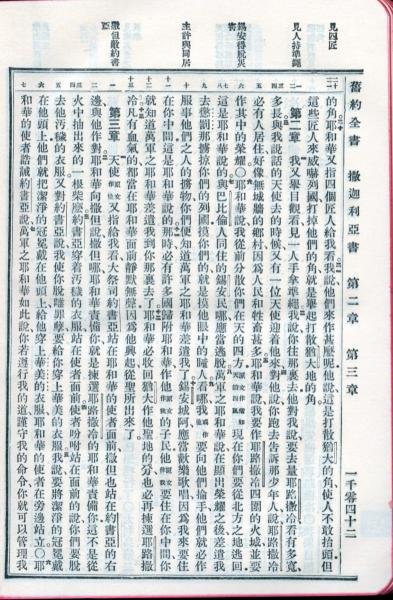 見四匠
見人持準繩
錫安得脫災害
主許與同居
撒但敵約書亞
舊約全書 撒迦利亞書 第二章 第三章 一千零四十二
的角耶和華又指四個匠人給我看我說他們來作甚麼呢他說這是打散猶大的角使人不敢抬頭但
這些匠人來威嚇列國打掉他們的角就是舉起打散猶大地的角
第二章 我又舉目觀看見一人手拿準繩我說你往那裏去他對我說要去量耶路撒冷看有多寬
多長與我說話的天使去的時候又有一位天使迎着他來對他說你跑去告訴那少年人說耶路撒冷
必有人居住好像無城牆的鄉村因爲人民和牲畜甚多耶和華說我要作耶路撒冷四圍的火城並要
作其中的榮耀○耶和華說我從前分散你們在天的四方現在你們要從北方之地逃回
這是耶和華說的與巴比倫人同住的錫安民哪應當逃脫萬軍之耶和華說在顯出榮耀之後差遣我
去懲罰那擄掠你們的列國摸你們的就是摸他眼中的瞳人看哪我要向他們掄手他們就必作
服事他們之人的擄物你便知道萬軍之耶和華差遣我了錫安城阿應當歡樂歌唱因爲我來要住
在你中間這是耶和華說的那時必有許多國歸附耶和華作他的子民他要住在你中間你
就知道萬軍之耶和華差遣我到你那裏去了耶和華必收回猶大作他聖地的分也必再揀選耶路撒
冷凡有血氣的都當在耶和華面前靜默無聲因爲他興起從聖所出來了
第三章 天使又指給我看大祭司約書亞站在耶和華的使者面前撒但也站在約書亞的右
邊與他作對耶和華向撒但說撒但哪耶和華責備你就是揀選耶路撒冷的耶和華責備你這不是從
火中抽出來的一根柴麽約書亞穿着汚穢的衣服站在使者面前使者吩咐站在面前的說你們要脫
去他汚穢的衣服又對約書亞說我使你脫離罪孽要給你穿上華美的衣服我說要將潔淨的冠冕戴
在他頭上他們就把潔淨的冠冕戴在他頭上給他穿上華美的衣服耶和華的使者在旁邊站立○耶
和華的使者誥誡約書亞說萬軍之耶和華如此說你若遵行我的道謹守我的命令你就可以管理我